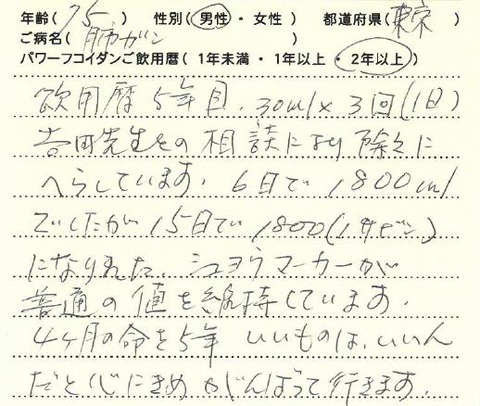 年齢( 75 ) 性別( 男性 ・ 女性 ) 都道府県( 東京 )
ご病名( 肺ガン )
パワーフコイダンご飲用暦( 1年未満 ・ 1年以上 ・ 2年以上 )
飲用暦5年目、30ml×3回(1日)
吉田先生との相談により除々に
へらしています。6日で1800ml
でしたが15日で1800(1ヶ
になりました。シュヨウマーカーが
普通の値を維持しています。
4ヶ月の命を5年 いいものは、いいん
だと心にきめがんばって行きます。